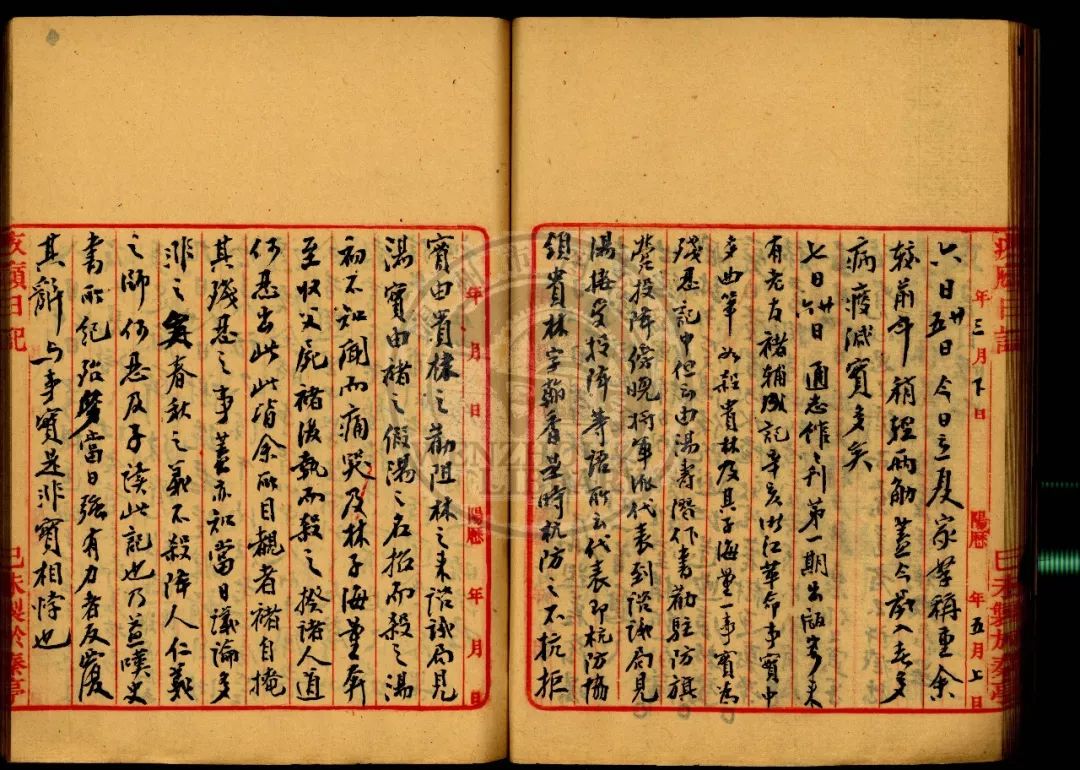 年三月下日 陽歷 年五月上日
六日廿五日今日立夏家挙稱重余
較前年稍輕兩觔蓋今歲入春多
病瘦減實多矣
七日廿六日通志作之刊第一期出版寄來
有老友褚輔成記辛亥浙江革命事實中
多曲筆如殺貴林及其子海量一事實為
殘忍記中但云由湯壽潛作書勸駐防旗
營投降傍晚將軍派代表到諮議局見
湯接受投降等語所云代表即杭防協
領貴林字翰香是時杭防之不抗拒
年 月 日 陽歷 年 月 日
實由貴林之勸阻林之來諮議局見
湯實由褚之假湯之名招而殺之湯
初不知聞而痛哭及林子海量奔
至收父屍褚復執而殺之揆諸人道
何忍出此此皆余所目覩者褚自掩
其殘忍之事蓋亦知當日議論多
非之矣春秋之義不殺降人仁義
之師何忍及子讀此記也乃益嘆史
書所紀殆皆當日強有力者反覆
其辭與事實是非實相悖也
日記
己未製於秦亭